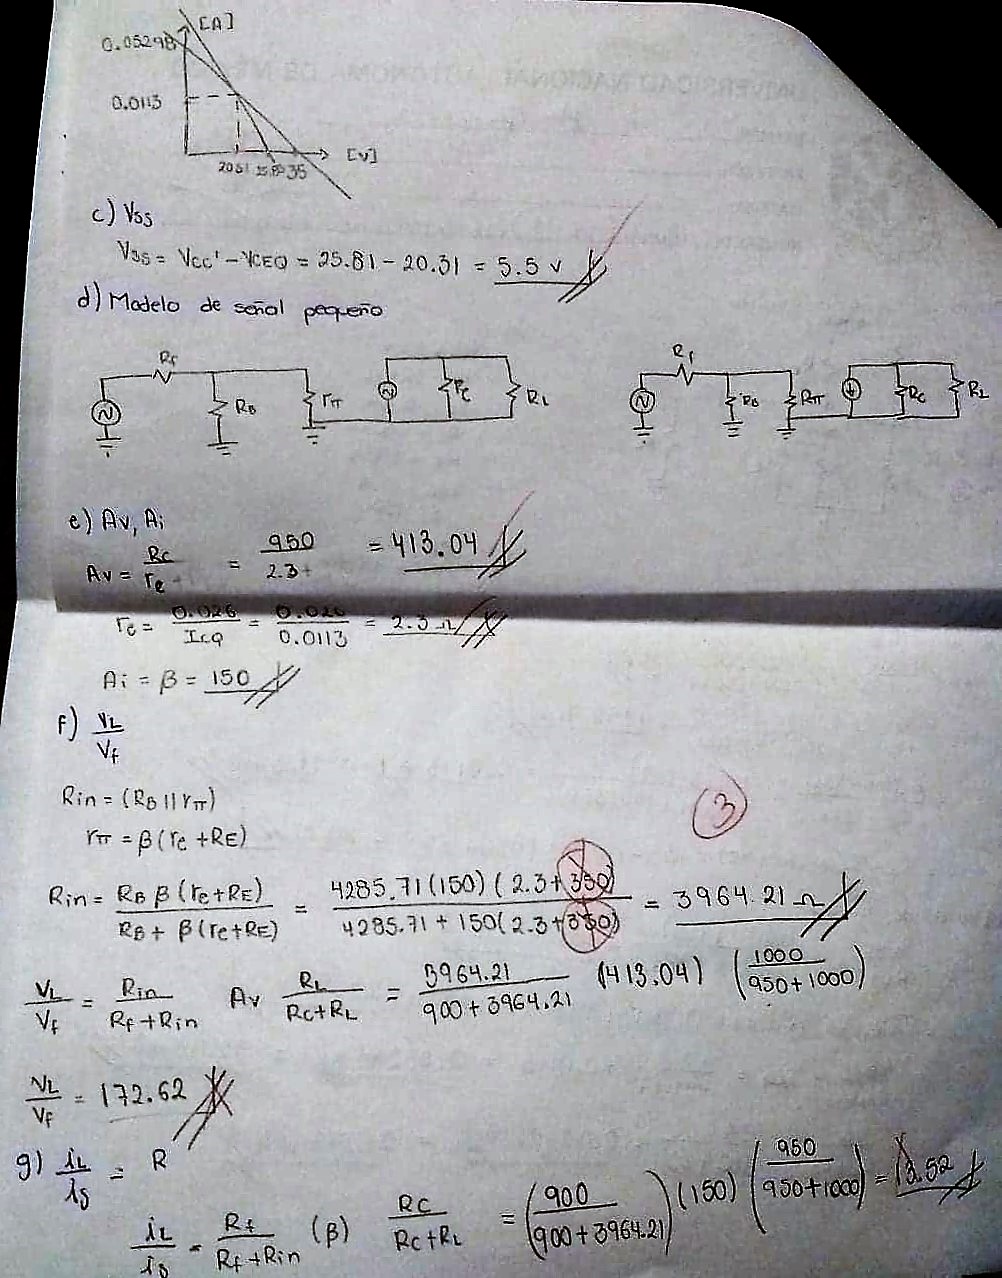 [A]
0.05298
0.0113
[V]
20.31 25.81 35
c) Vss
Vss = Vcc' - VCEQ = 25.81 - 20.31 = 5.5 v
d) Modelo de señal pequeño
Rf RB rπ RC RL
Rf RB Rπ RC RL
e) Av, Ai
Av = Rc/re = 950/2.3 = 413.04
re = 0.026/IcQ = 0.026/0.0113 = 2.3 Ω
Ai = β = 150
f) VL/Vf
Rin = (RB || rπ)
3
rπ = β(re + RE)
Rin = RB β (re + RE)/RB + β (re + RE) = 4285.71 (150) (2.3 + 350)/4285.71 + 150 (2.3 + 350) = 3964.21 Ω
VL/Vf = Rin/Rf + Rin Av RL/Rc + RL = 3964.21/900 + 3964.21 (413.04) (1000/950 + 1000)
VL/Vf = 172.62
g) iL/is = R
iL/is = Rf/Rf + Rin (β) RC/RC + RL = (900/900 + 3964.21) (150) (950/950 + 1000) = 13.52